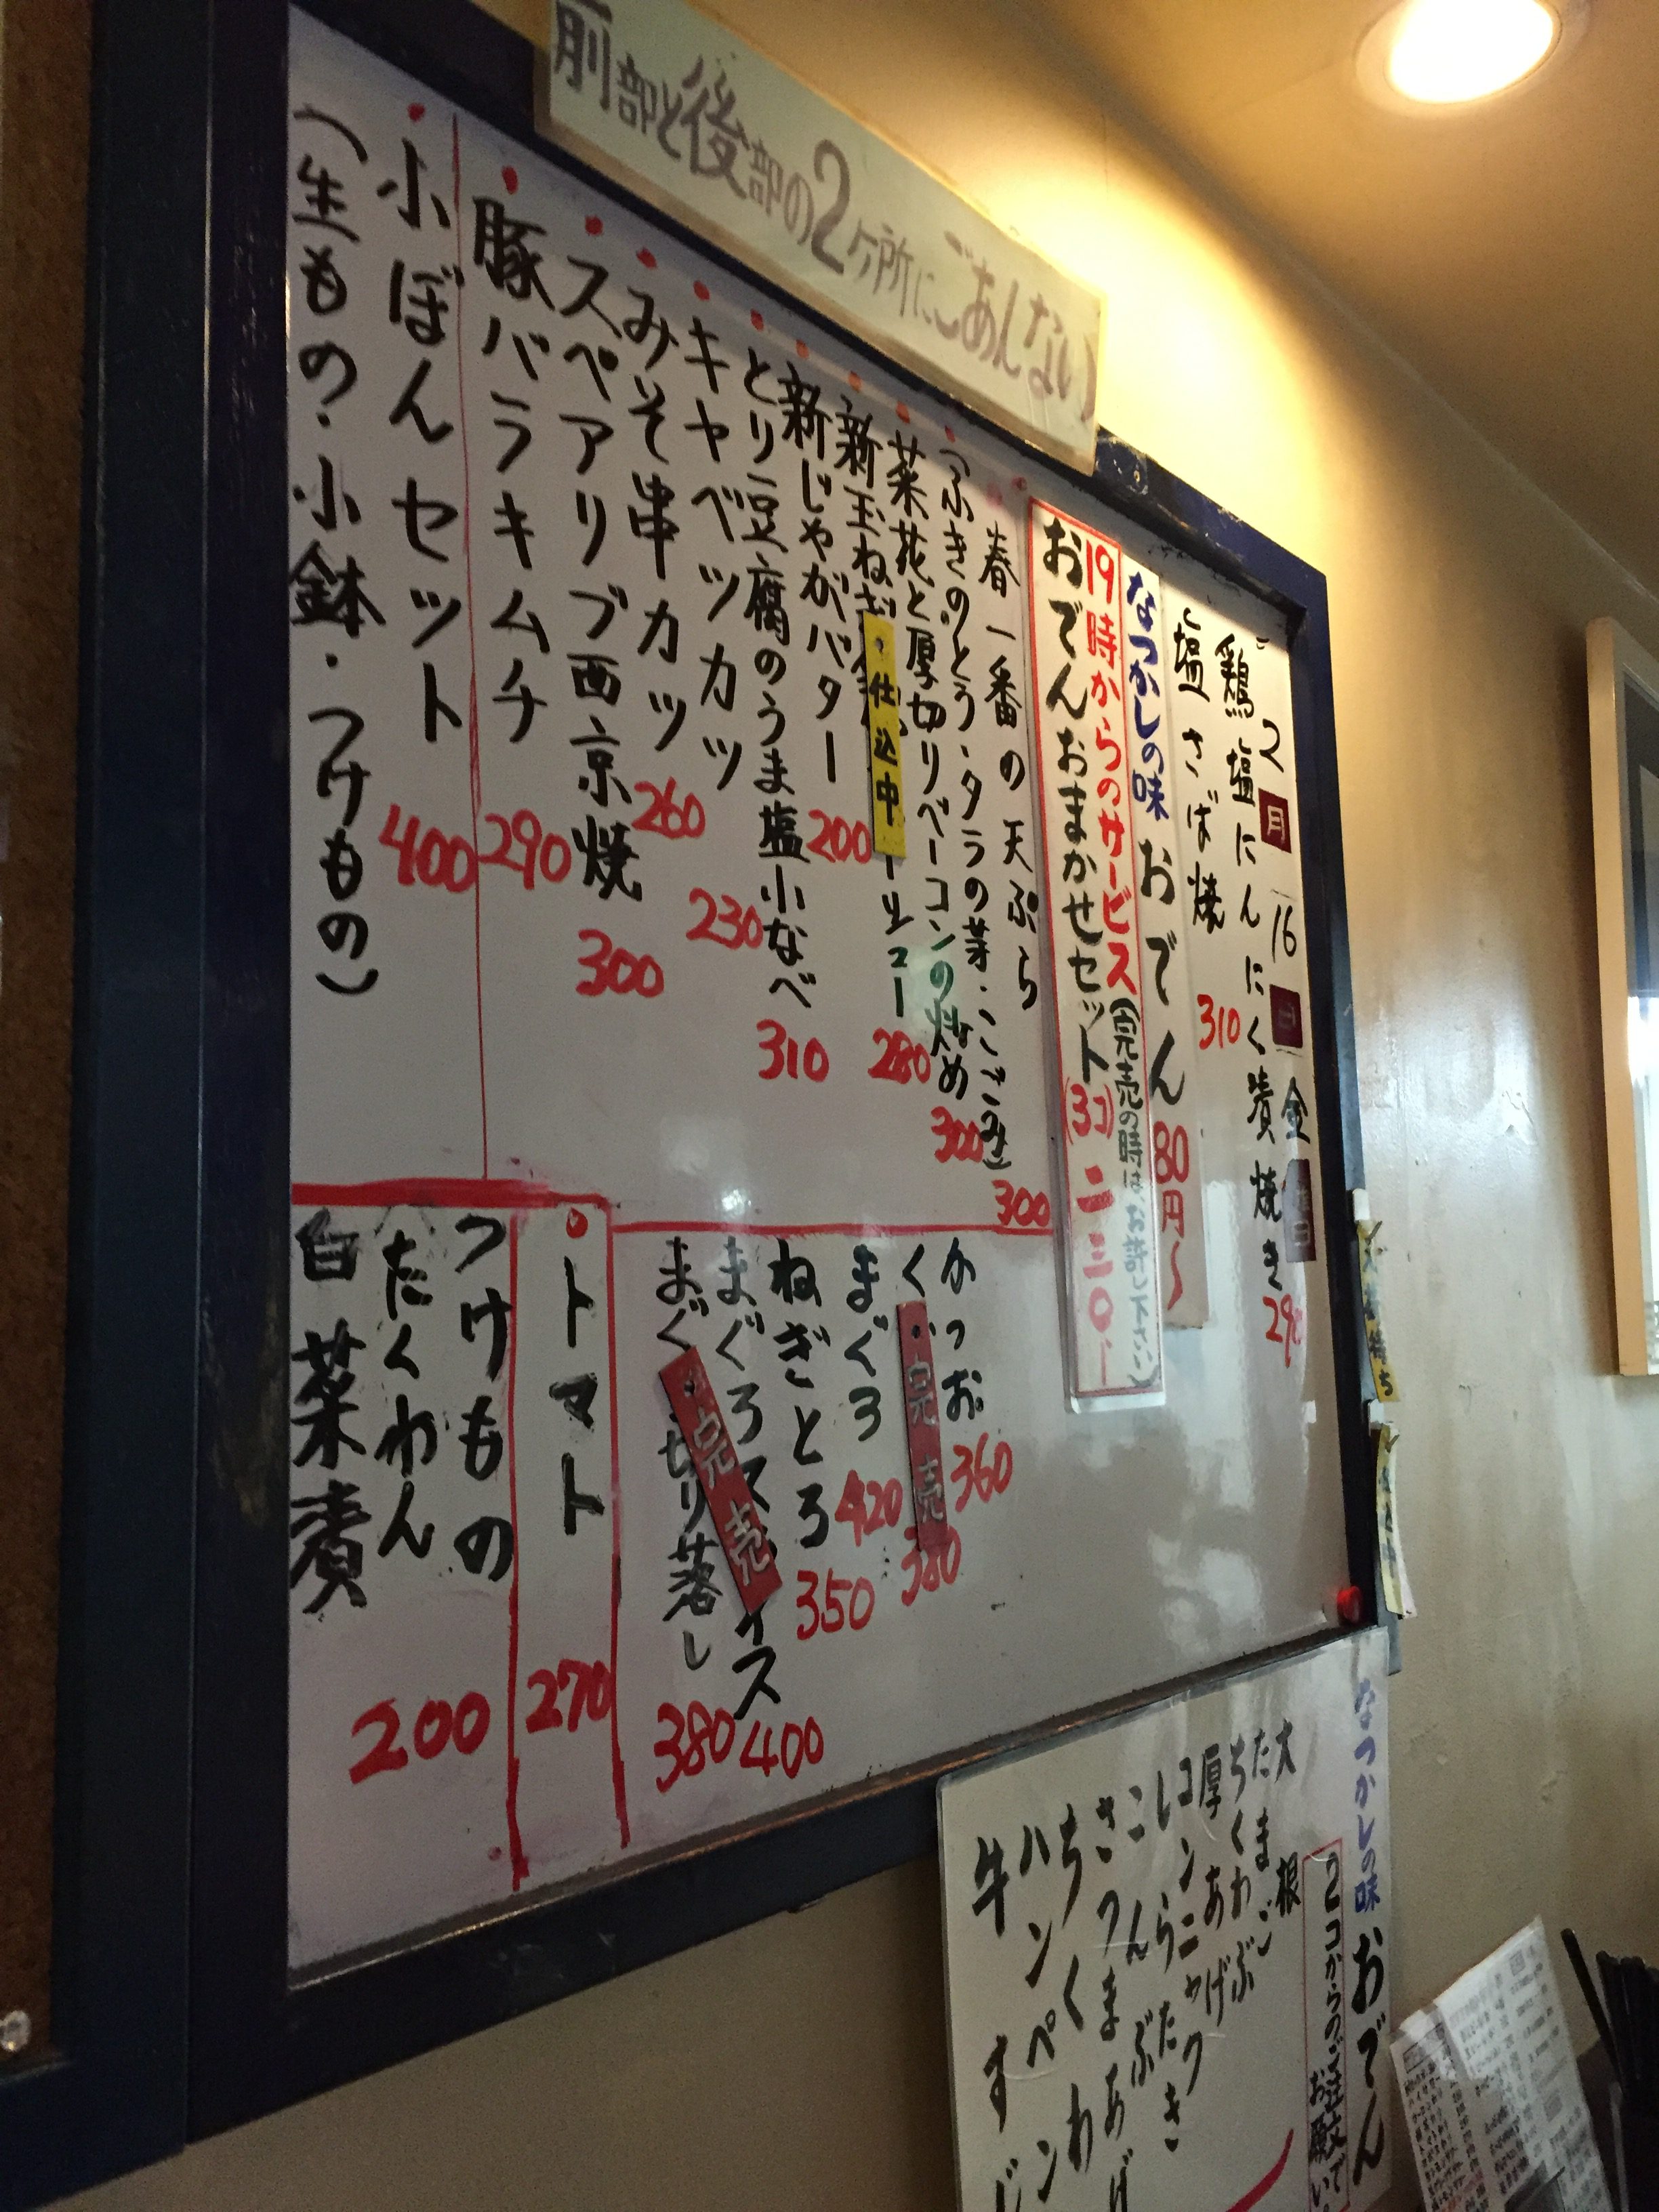 前部と後部の2ヶ所にごあんない
2月16日金曜日
鶏塩にんにく漬焼き 290
塩さば焼 310
なつかしの味 おでん 80円〜
19時からのサービス(完売の時はお許し下さい)
おでんおまかせセット(3コ) 二三〇.-
春一番の天ぷら
(ふきのとう・タラの芽・こごみ) 300
菜花と厚切りベーコンの炒め 300
新玉ねぎ
仕込中
280
新じゃがバター 200
とり豆腐のうま塩小なべ 310
キャベツカツ 230
みそ串カツ 260
スペアリブ西京焼 300
豚バラキムチ 290
小ぼんセット 400
(生もの・小鉢・つけもの)
かつお 360
完売
380
まぐろ 420
ねぎとろ 350
まぐろスライス 400
完売
まぐ 切り落し 380
トマト 270
つけもの
たくわん
白菜漬 200
なつかしの味 おでん
2コからのご注文でお願い
大根
たまご
ちくわぶ
厚あげ
コンニャク
しらたき
こんぶ
さつまあげ
ちくわ
ハンペン
牛すじ